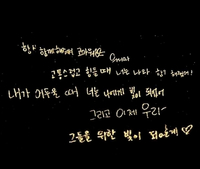 항상 함께해줘서 고마워요
고통스럽고 힘들 때 너는 나와 함께 해줬어
내가 어두울 때 너는 나에게 빛이 되었어
그리고 이제 우리가
그들을 위한 빛이 되어줄게 ♡